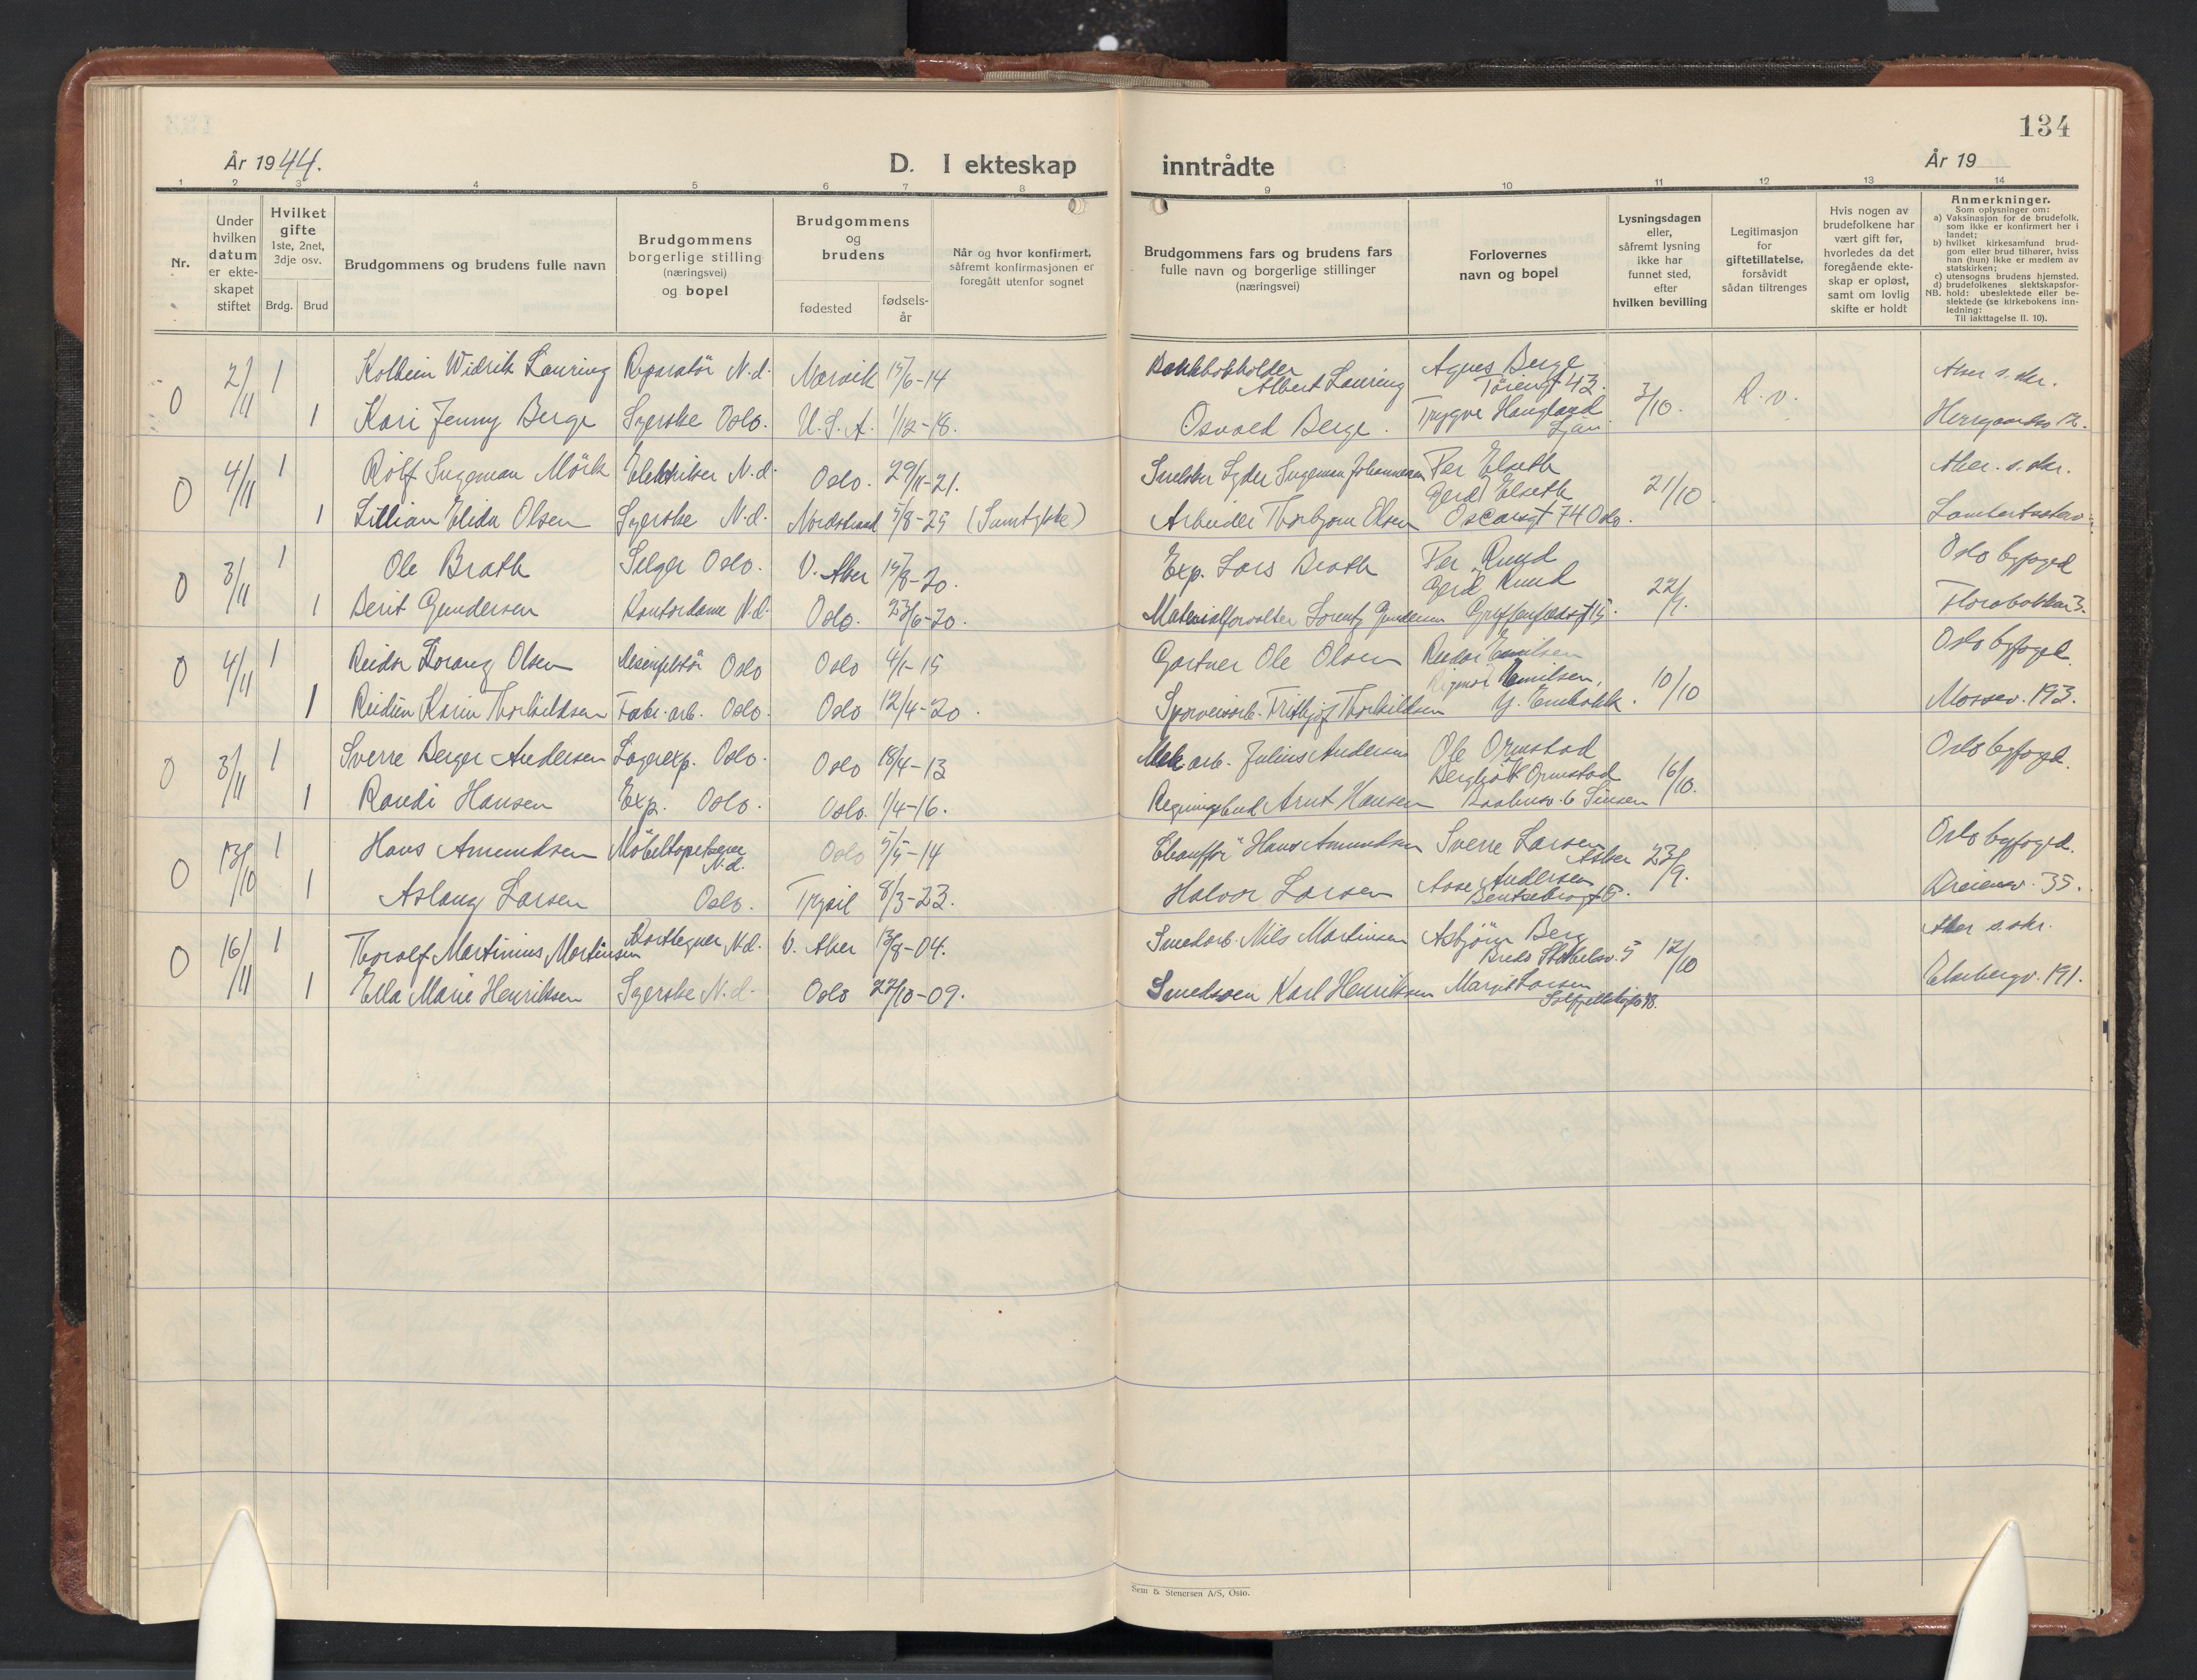 134
År 1944.
D. I ekteskap inntrådte
År 19
1 2 3 4 5 6 7 8 9 10 11 12 13 14
Nr.
Under hvilken datum er ekteskapet stiftet
Hvilket gifte 1ste, 2net, 3dje osv.
Brdg. Brud
Brudgommens og brudens fulle navn
Brudgommens borgerlige stilling (næringsvei) og bopel
Brudgommens og brudens
fødested
fødsels-år
Når og hvor konfirmert, såfremt konfirmasjonen er foregått utenfor sognet
Brudgommens fars og brudens fars fulle navn og borgerlige stillinger (næringsvei)
Forlovernes navn og bopel
Lysningsdagen eller, såfremt lysning ikke har funnet sted, efter hvilken bevilling
Legitimasjon for giftetillatelse, forsåvidt sådan tiltrenges
Hvis nogen av brudefolkene har vært gift før, hvorledes da det foregående ekteskap er opløst, samt om lovlig skifte er holdt
Anmerkninger.
Som oplysninger om:
a) Vaksinasjon for de brudefolk, som ikke er konfirmert her i landet;
b) hvilket kirkesamfund brudgom eller brud tilhører, hviss han (hun) ikke er medlem av statskirken;
c) utensogns brudens hjemsted.
d) brudefolkenes slektskapsforhold: ubeslektede eller beslektede (se kirkebokens innledning:
NB. Til iakttagelse II. 10).
0 2/11 1 Kolbein Widrik Lauring Reparatör N.d. Narvik 15/6-14 Bokholder Albert Lauring Agnes Berge 43. 3/10. R.v. Aker s.skr.
1 Kari Jenny Berge Syerske Oslo. U.S.A. 1/12-18. Osvald Berge. Trygve Haugland Ljan Herregaardsv 12.
0 4/11 1 Rolf Ingeman Mörk Elektriker N.d. Oslo. 29/11-21. Snekker Ingeman Johannesen Per Elseth 21/10. Aker. s.skr.
1 Lillian Elida Olsen Syerske N.d. Nordstrand 5/8-25 Arbeider Thorbjørn Olsen Gerd Elseth Oscarsgt 74 Oslo. Lambertseterv.
0 3/11 1 Ole Brath Selger Oslo. V. Aker 15/8-20. Exp. Lars Brath Per Ruud 22/9. Oslo byfoged
1 Berit Gundersen Kontordame N.d. Oslo. 23/6-20. Materialforvalter Lorentz Gundersen Gerd Ruud Griffenfeldsgt 15. 
0 4/11 1 Reidar Olsen Oslo Oslo 4/1-15 Gartner Ole Olsen Reidar Emilsen 10/10 Oslo byfoged.
1 Reidun Karin Thorkildsen Fabr.arb. Oslo. Oslo 12/4-20. Sporveisarb. Fritbjof Thorkildsen Rigmor Emilsen, Mossev. 193.
0 3/11 1 Sverre Berger Andersen Lagerexp. Oslo. Oslo 18/4-13 Mek arb. Julius Andersen Ole Ormstad 16/10. Oslo byfoged.
1 Randi Hansen Exp. Oslo. Oslo. 1/4-16. Regningsbud Arnt Hansen Bergljot Ormstad 6 Sinsen
0 13/10 1 Hans Amundsen Möbeltapetserer N.d. Oslo 5/5-14 Chaufför Hans Amundsen Sverre Larsen Asker 23/9. Oslo byfoged.
1 Aslaug Larsen Oslo. Trysil 8/3-23. Halvor Larsen Aase Andersen Bentsebrogt Ekeiensv. 35.
0 16/11 1 Thorolf Martinius Martinsen Karttegner N.d. V. Aker 13/8-04. Smedarb. Nils Martinsen Asbjörn Berg Bredo Stabelsv. 5 12/10 Aker s.skr.
1 Ella Marie Henriksen Syerske N.d. Oslo 22/10-09. Smedsven Karl Henriksen Margit Larsen Solfjellshøgda 48. Ekebergv. 191.
Sem & Stenersen A/S, Oslo.